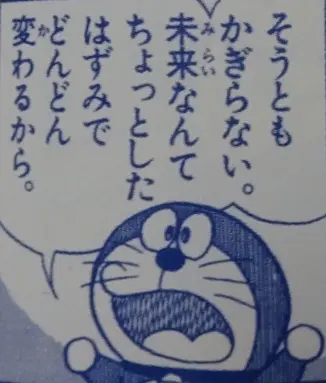 そうとも
かぎらない。
未来なんて
ちょっとした
はずみで
どんどん
変わるから。